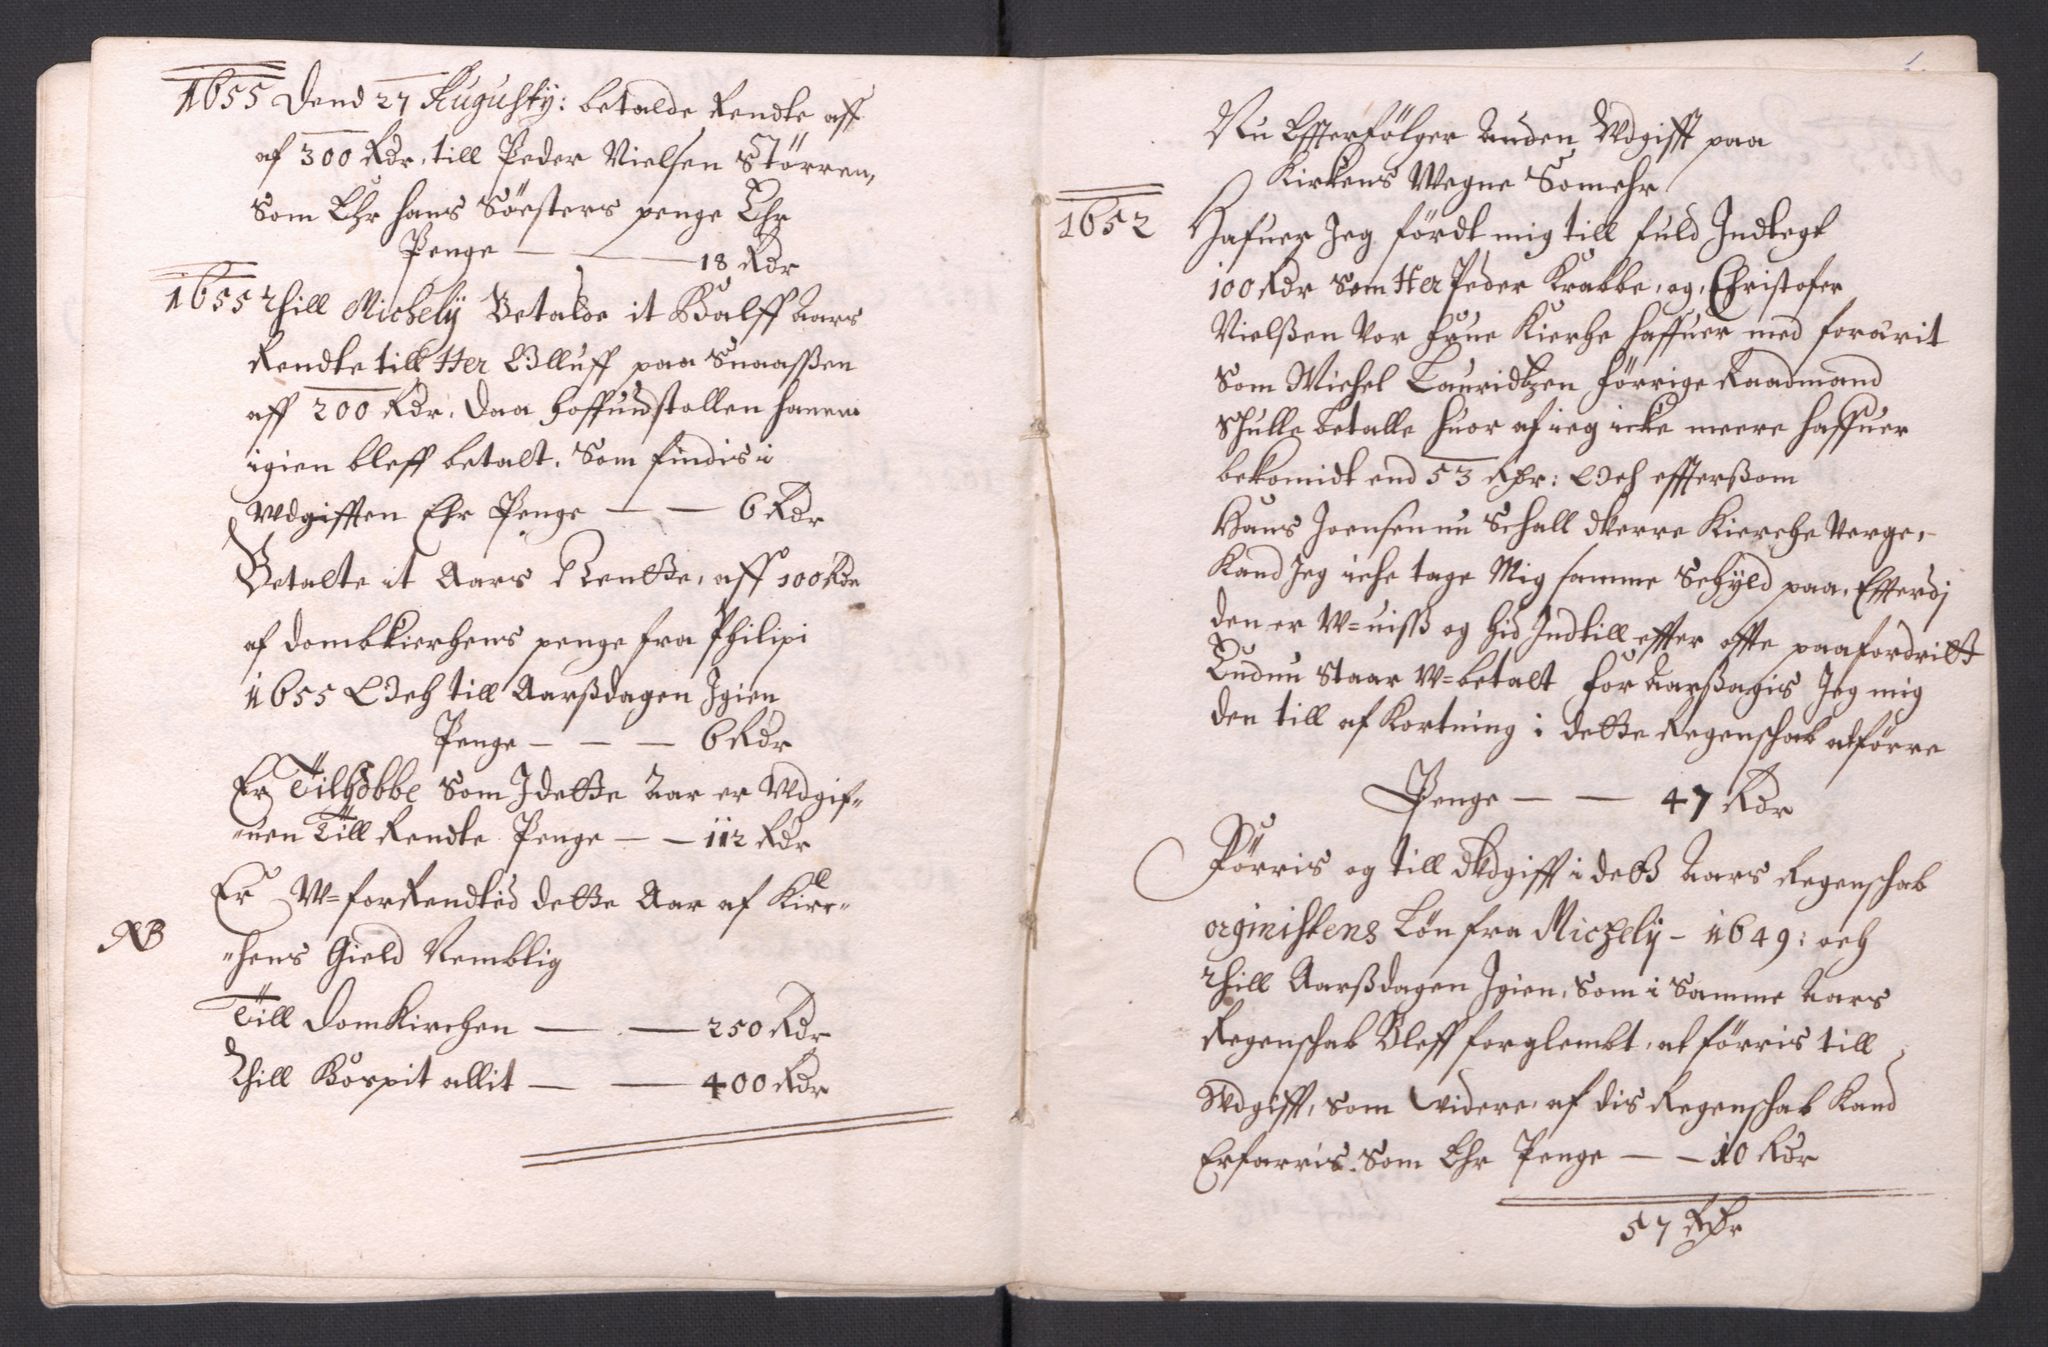 1655 Dend 27 Augusty: betalde Rendte aff
af 300 Rdr. till Peder Nielsen Störren,
som Ehr hans Söesters penge Ehr
Penge — — 18 Rdr
1655 Thill Michely Betalde it Halff Aars
Rendte till Her Olluff paa Snaaßen
aff 200 Rdr. daa hoffuidstollen hannem
igien bleff betalt. Som findis i
Wdgifften Ehr Penge — — 6 Rdr
Betalte it Aars Rentte, aff 100 Rdr
af dombkierchens penge fra Philipi
1655 Och till Aarßdagen Igien
Penge — — — 6 Rdr
Er Tilhobbe Som I dette Aar er Wdgif-
-uen Till Rendte Penge — — 112 Rdr
Er W=forRendted dette Aar af Kirc-
NB
-hens Gield Nemblig
Till DomKirchen — — 250 Rdr
Thill Hospitallit — — 400 Rdr
Nu Effterfölger Anden Wdgifft paa
Kirkens Wegne Somehr
1652 Hafuer Jeg fördt mig till fuld Indtegt
100 Rdr Som Her Peder Krabbe, og, Christofer
Nielßen Vor Frue Kierche haffuer med forærit
Som Michel Lauridtzen förrige Raadmand
Schulle betalle huor af ieg icke meere haffuer
bekomidt end 53 Rdr: Och effterßom
Hans Joensen nu Schall werre Kierche Verge,
Kand Jeg iche tage Mig samme Schyld paa, Effterdj
den er W=uiss og hid Indtill effter offte paafordrilß
Endnu Staar W=betalt foraarßagis Jeg mig
den till af Kortning i dette Regenschab at förre
Penge — — 47 Rdr
Förris og till Wdgifft i dette Aars Regenschab
orginistens Lön fra Michely - 1649: och
Thill Aarßdagen Igien, Som i Samme Aars
Regenschab Bleff forglembt, at förris till
Wdgifft, som widere af dis Regenschab Kand
Erfarris. Som Ehr Penge — — 10 Rdr
57 Rdr